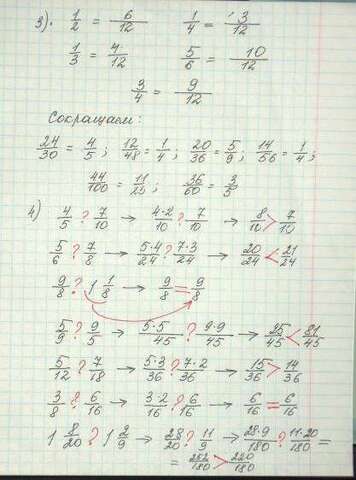 3). 1/2 = 6/12    1/4 = 3/12
1/3 = 4/12    5/6 = 10/12
3/4 = 9/12
Сокращаем:
24/30 = 4/5; 12/48 = 1/4; 20/36 = 5/9; 14/56 = 1/4;
44/100 = 11/25; 36/60 = 3/5
4) 4/5 ? 7/10 → 4·2/10 ? 7/10 → 8/10 > 7/10
5/6 ? 7/8 → 5·4/24 ? 7·3/24 → 20/24 < 21/24
9/8 ? 1 1/8 → 9/8 = 9/8
5/9 ? 9/5 → 5·5/45 ? 9·9/45 → 25/45 < 81/45
5/12 ? 7/18 → 5·3/36 ? 7·2/36 → 15/36 > 14/36
3/8 ? 6/16 → 3·2/16 ? 6/16 → 6/16 = 6/16
1 8/20 ? 1 2/9 → 28/20 ? 11/9 → 28·9/180 ? 11·20/180 =
= 252/180 > 220/180